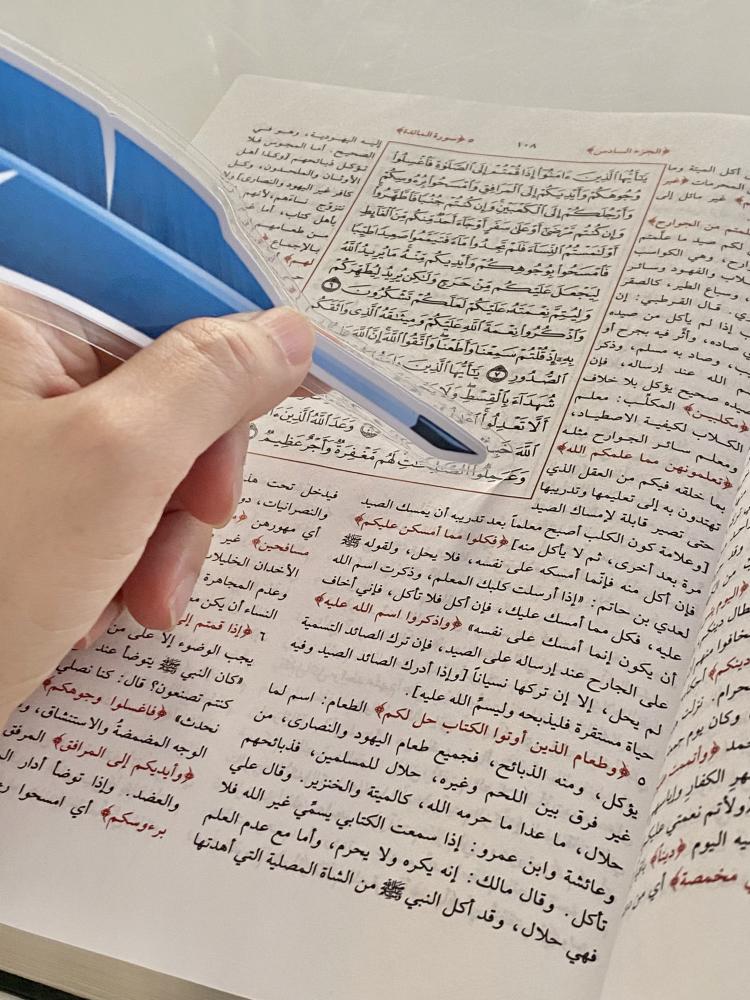 ﴿الجزء السادس﴾
١٠٨
٥ ﴿سورة المائدة﴾
يَٰٓأَيُّهَا ٱلَّذِينَ ءَامَنُوٓا۟ إِذَا قُمْتُمْ إِلَى ٱلصَّلَوٰةِ فَٱغْسِلُوا۟
وُجُوهَكُمْ وَأَيْدِيَكُمْ إِلَى ٱلْمَرَافِقِ وَٱمْسَحُوا۟ بِرُءُوسِكُمْ
وَأَرْجُلَكُمْ إِلَى ٱلْكَعْبَيْنِ وَإِن كُنتُمْ جُنُبًا فَٱطَّهَّرُوا۟
وَإِن كُنتُم مَّرْضَىٰٓ أَوْ عَلَىٰ سَفَرٍ أَوْ جَآءَ أَحَدٌ مِّنكُم مِّنَ ٱلْغَآئِطِ
أَوْ لَٰمَسْتُمُ ٱلنِّسَآءَ فَلَمْ تَجِدُوا۟ مَآءً فَتَيَمَّمُوا۟ صَعِيدًا طَيِّبًا
فَٱمْسَحُوا۟ بِوُجُوهِكُمْ وَأَيْدِيكُم مِّنْهُ مَا يُرِيدُ ٱللَّهُ
لِيَجْعَلَ عَلَيْكُم مِّنْ حَرَجٍ وَلَٰكِن يُرِيدُ لِيُطَهِّرَكُمْ
وَلِيُتِمَّ نِعْمَتَهُۥ عَلَيْكُمْ لَعَلَّكُمْ تَشْكُرُونَ ٦
وَٱذْكُرُوا۟ نِعْمَةَ ٱللَّهِ عَلَيْكُمْ وَمِيثَٰقَهُ ٱلَّذِى وَاثَقَكُم
بِهِۦٓ إِذْ قُلْتُمْ سَمِعْنَا وَأَطَعْنَا وَٱتَّقُوا۟ ٱللَّهَ إِنَّ ٱللَّهَ
ٱلصُّدُورِ ٧ يَٰٓأَيُّهَا ٱلَّذِينَ
شُهَدَآءَ بِٱلْقِسْطِ وَلَا
أَلَّا تَعْدِلُوا۟
ٱللَّهَ وَعَدَ ٱللَّهُ ٱلَّذِينَ
وَعَمِلُوا۟ لَهُم مَّغْفِرَةٌ وَأَجْرٌ عَظِيمٌ
أكل الميتة وما
المحرمات ﴿غير
غير مائل إلى
من الجوارح﴾
لكم صيد ما علمتم
وهي الكواسب
والفهود وسائر
وسباع الطير، كالصقر
قال القرطبي: إن
إذا لم يأكل من صيده
صاده، وأثر فيه بجرح أو
وصاد به مسلم، وذكر
الله عند إرساله، فإن
صحيح يؤكل بلا خلاف
﴿مكلبين﴾ المكلب: معلم
الكلاب لكيفية الاصطياد،
ومعلم سائر الجوارح مثله
﴿تعلمونهن مما علمكم الله﴾
بما خلقه فيكم من العقل الذي
تهتدون به إلى تعليمها وتدريبها
حتى تصير قابلة لإمساك الصيد
[وعلامة كون الكلب أصبح معلماً بعد تدريبه أن يمسك الصيد
مرة بعد أخرى، ثم لا يأكل منه] ﴿فكلوا مما أمسكن عليكم﴾
فإن أكل منه فإنما أمسكه على نفسه، فلا يحل، لقوله ﷺ
لعدي بن حاتم: «إذا أرسلت كلبك المعلم، وذكرت اسم الله
عليه، فكل مما أمسك عليك، فإن أكل فلا تأكل، فإني أخاف
أن يكون إنما أمسك على نفسه» ﴿واذكروا اسم الله عليه﴾
على الجارح عند إرساله على الصيد، فإن ترك الصائد التسمية
لم يحل، إلا إن تركها نسياناً [وإذا أدرك الصائد الصيد وفيه
حياة مستقرة فليذبحه وليسمِّ الله عليه].
٥ ﴿وطعام الذين أوتوا الكتاب حل لكم﴾ الطعام: اسم لما
يؤكل، ومنه الذبائح، فجميع طعام اليهود والنصارى، من
غير فرق بين اللحم وغيره، حلال للمسلمين، فذبائحهم
حلال، ما عدا ما حرمه الله، كالميتة والخنزير. وقال علي
وعائشة وابن عمرو: إذا سمعت الكتابي يسمِّي غير الله فلا
تأكل. وقال مالك: إنه يكره ولا يحرم، وأما مع عدم العلم
فهي حلال، وقد أكل النبي ﷺ من الشاة المصلية التي أهدتها
إليه اليهودية، وهو في
الصحيح. أما المجوس فلا
تؤكل ذبائحهم
الأوثان والملحدون، وكل
كافر غير اليهود والنصارى]
نتزوج نساءهم، لأنهم
بأهل كتاب، أما
من طعامهم
بالإجماع
لهم﴾
فيدخل تحت
والنصرانيات،
أي مهورهن
مسافحين﴾ غير
الأخدان الخليلات
وعدم المجاهرة
النساء أن يكن
٦ ﴿إذا قمتم إلى
يجب الوضوء إلا على من
«كان النبي ﷺ يتوضأ عند
كنتم تصنعون؟ قال: كنا نصلي
نحدث» ﴿فاغسلوا وجوهكم﴾
الوجه المضمضةُ والاستنشاق،
﴿وأيديكم إلى المرافق﴾ المرفق
والعضد. وإذا توضأ أدار
برءوسكم﴾ أي امسحوا